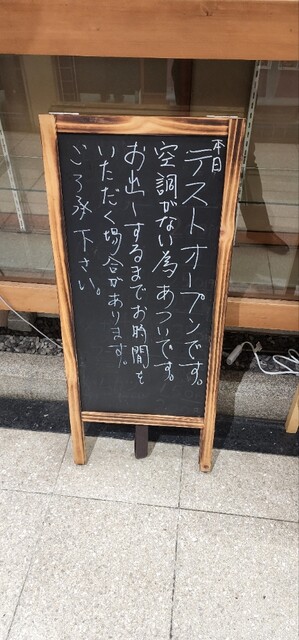 本日
テストオープンです。
空調がない為あついです。
お出しするまでお時間を
いただく場合があります。
ご了承下さい。